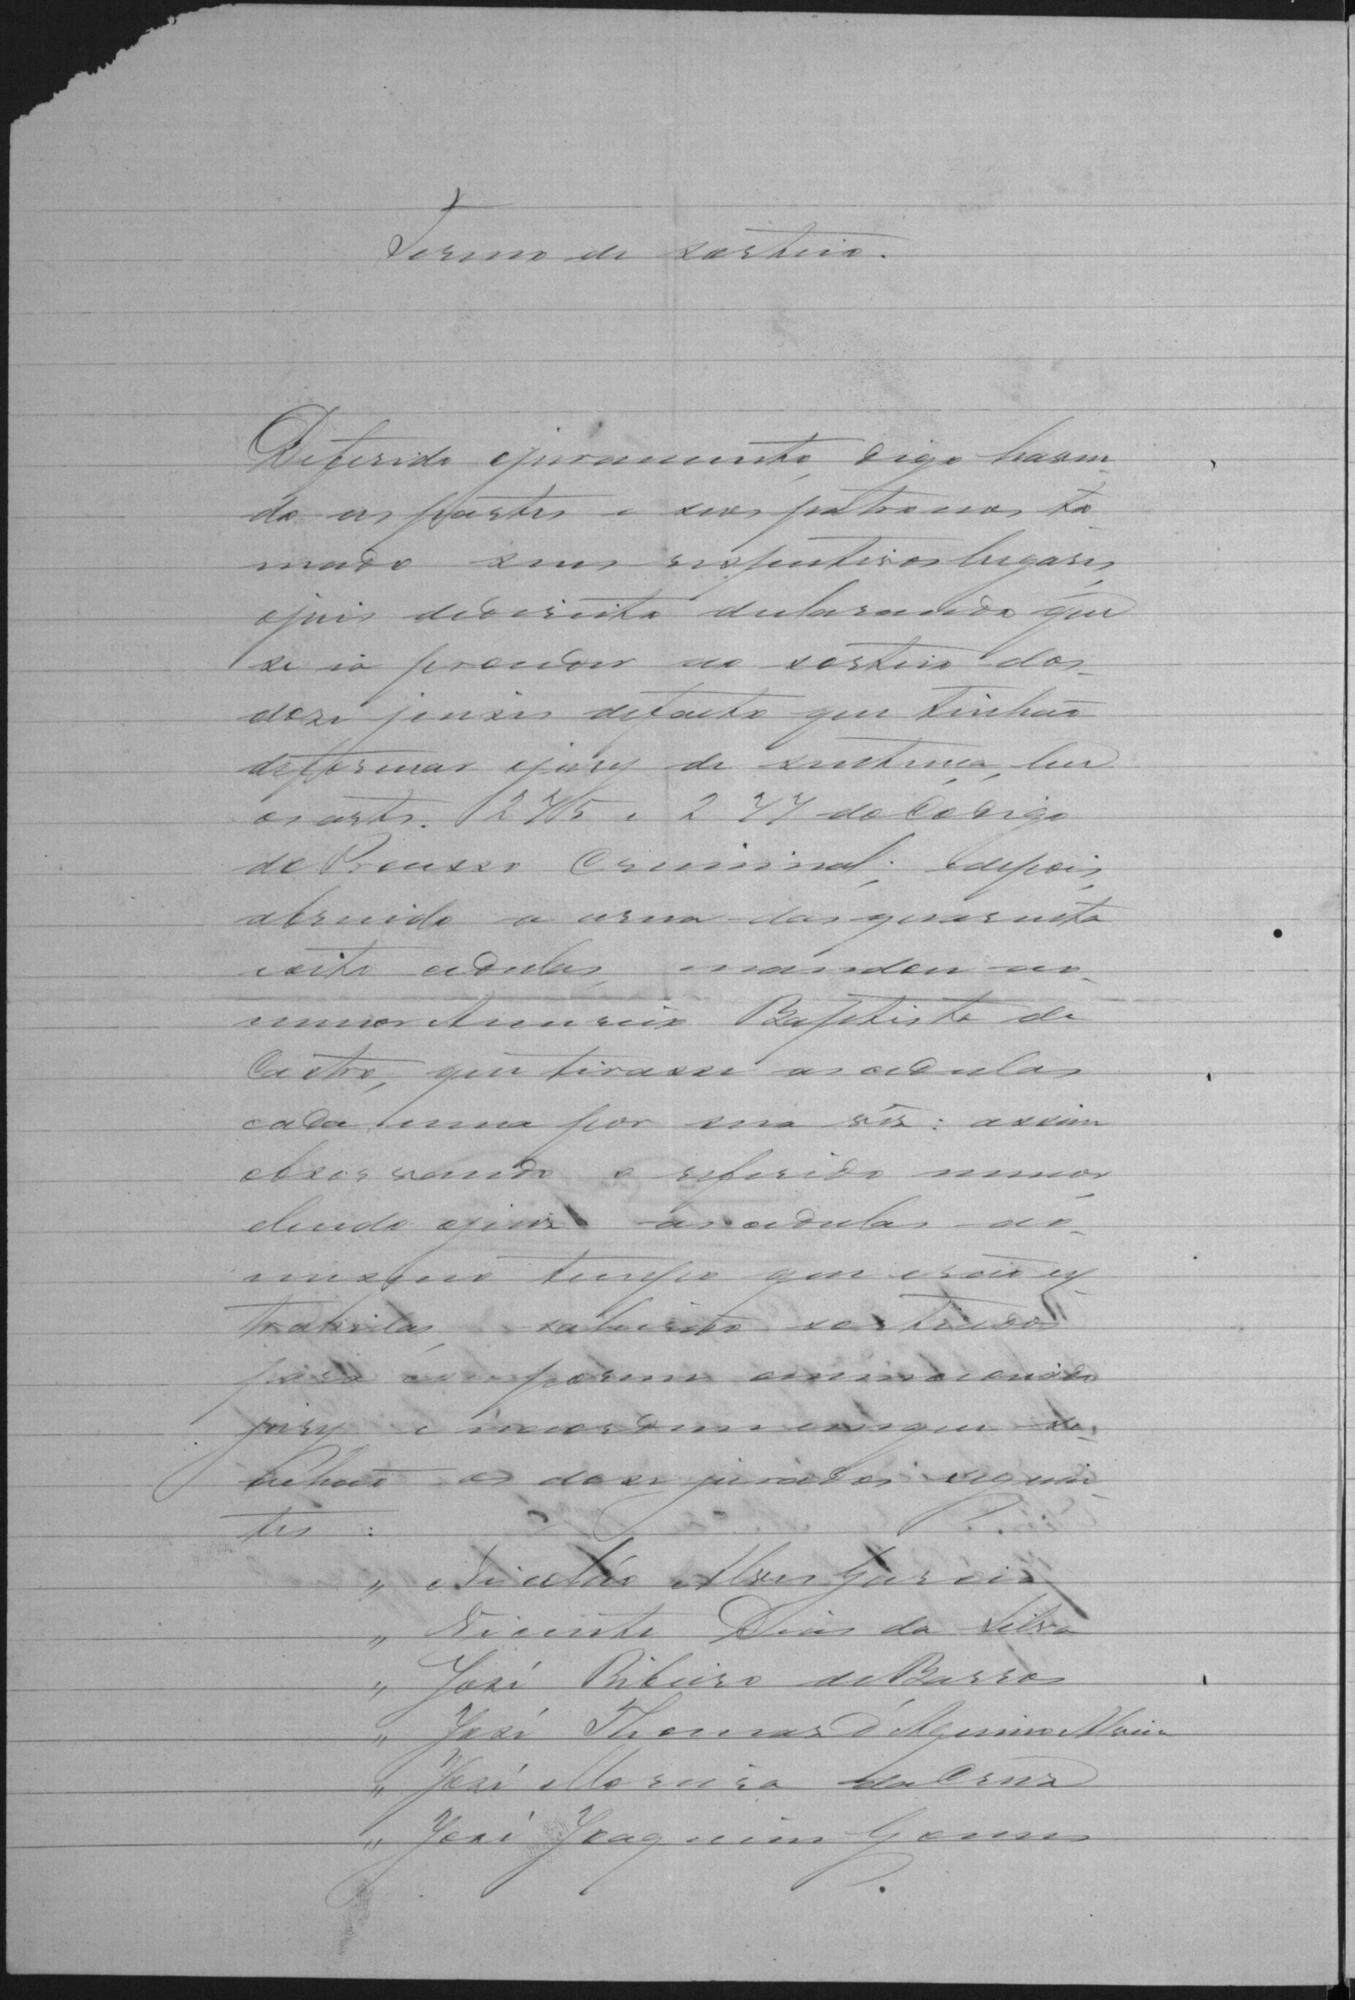 Termo de sorteio.
Deferido ojuramento, digo haven-
do as partes e seos patronos to-
mado seus respectivos lugares,
ojuis dedireito declarando que
se ia proceder ao sorteio dos
doze juises defacto que tinhão
deformar ojury de sentença, leu
os arts. 275 e 277 do Codigo
do Processo Criminal; edepois,
abrindo a urna das quarenta
eoito cedulas, mandou ao
menor Baptista de
Castro, que tirasse as cedulas
cada uma por sua vez: assim
observando o referido menor,
lendo ojuiz as cedulas ao
mesmo tempo que erão ex-
trahidas, sahirão sorteados
para comporem omencionado
jury e naordem emque se
achão os doze jurados seguin-
tes:
" Nicoláo Alves Garcia
" Vicente Dias da Silva
" José Ribeiro de Barros
" José Thomas d'Aquino
" José Moreira da Cruz
" José Joaquim Gomes